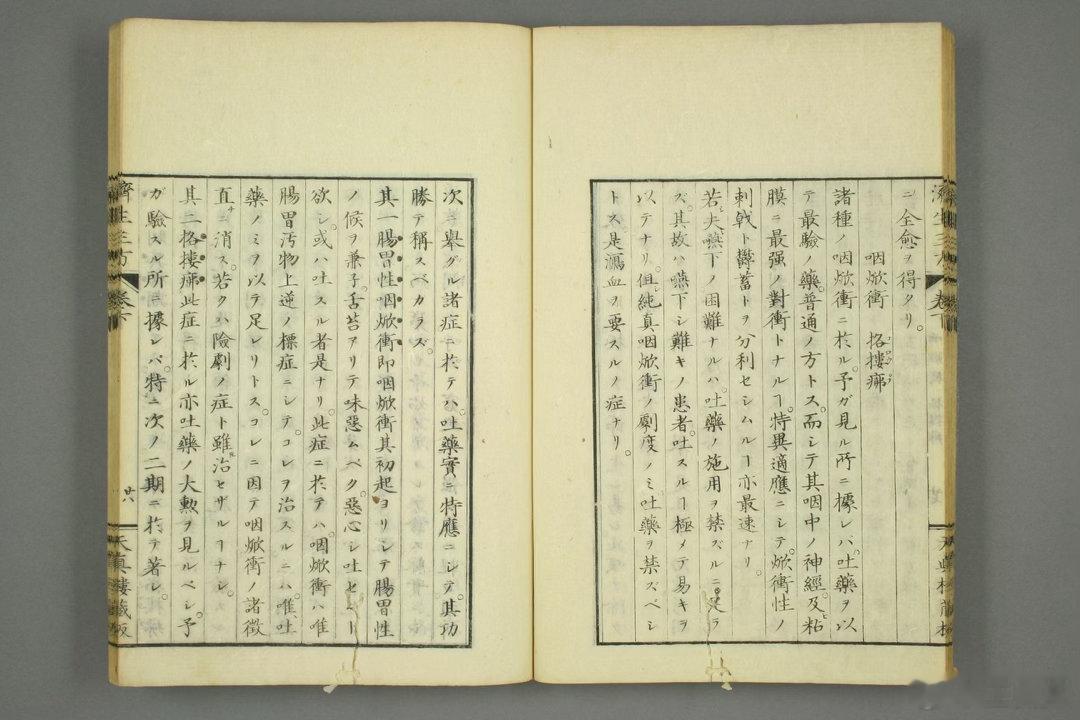 ニ全愈ヲ得タリ。
咽焮衝　挌摟痹
諸種ノ咽焮衝ニ於ル。予ガ見ル所ニ據レバ。吐藥ヲ以
テ最驗ノ藥。普通ノ方トス。而シテ其咽中ノ神經及粘
膜ニ最强ノ對衝トナルヿ。特異適應ニシテ。焮衝性ノ
刺戟ト鬱蓄トヲ分利セシムルヿ亦最速ナリ。
若夫嚥下ノ困難ナルハ。吐藥ノ施用ヲ禁ズルニ足ラ
ズ。其故ハ嚥下シ難キノ患者。吐スルヿ極メテ易キヲ
以テナリ。但純真咽焮衝ノ劇度ノミ吐藥ヲ禁ズベシ
トス是瀉血ヲ要スルノ症ナリ。
次ニ擧グル諸症ニ於テハ。吐藥實ニ特應ニシテ。其功
勝テ稱スベカラズ。
其一腸胃性咽焮衝即咽焮衝其初起ヨリシテ腸胃性
ノ候ヲ兼子。舌苔アリテ味惡ムベク。惡心シ吐セムヿ
欲シ。或ハ吐スル者是ナリ。此症ニ於テハ。咽焮衝ハ唯
腸胃汚物上逆ノ標症ニシテ。コレヲ治スルニハ。唯吐
藥ノミヲ以テ足レリトスコレニ因テ咽焮衝ノ諸徴
直ニ消ス。若クハ險劇ノ症ト雖治セザルヿナシ。
其二挌摟痹此症ニ於ル亦吐藥ノ大勲ヲ見ルベシ。予
ガ驗スル所ニ據レバ。特ニ次ノ二期ニ於テ著シ。
濟生三方　卷下
廿八
天真樓藏板